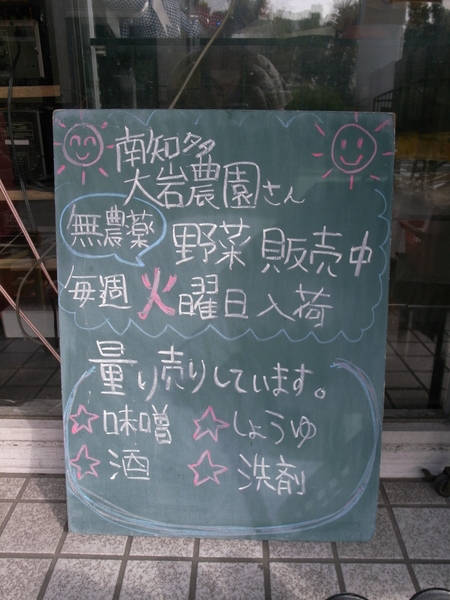 南知多
大岩農園さん
無農薬 野菜 販売中
毎週 火曜日 入荷
量り売りしています。
☆味噌 ☆しょうゆ
☆酒 ☆洗剤